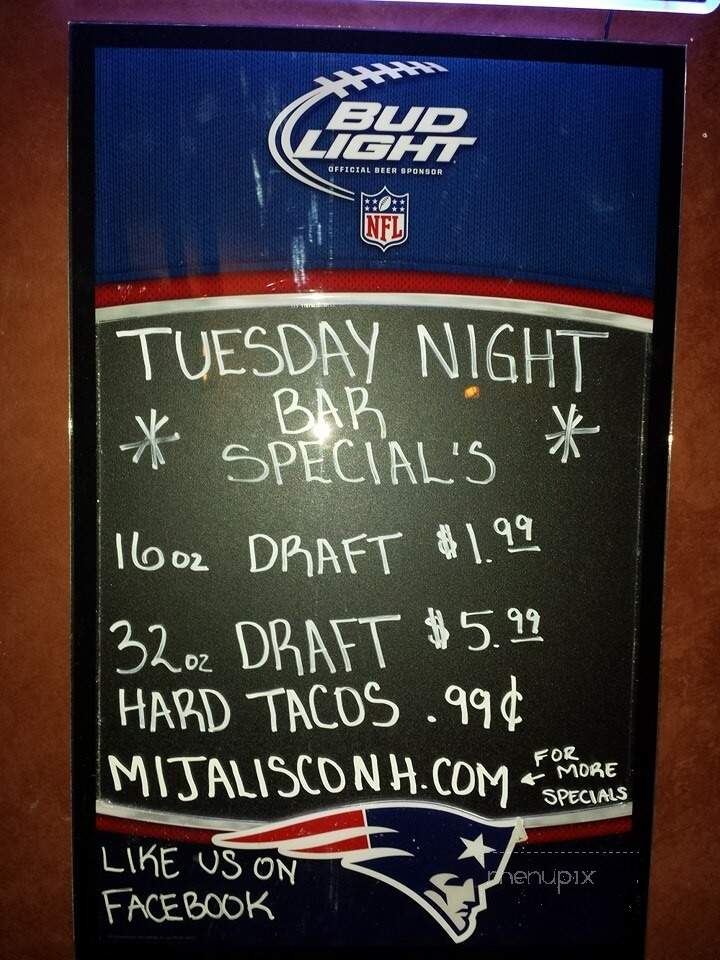 BUD
LIGHT
OFFICIAL BEER SPONSOR
NFL
TUESDAY NIGHT
BAR
SPECIAL'S
16oz DRAFT $1.99
32oz DRAFT $5.99
HARD TACOS .99¢
MIJALISCONH.COM ← FOR MORE SPECIALS
LIKE US ON
FACEBOOK
menupix